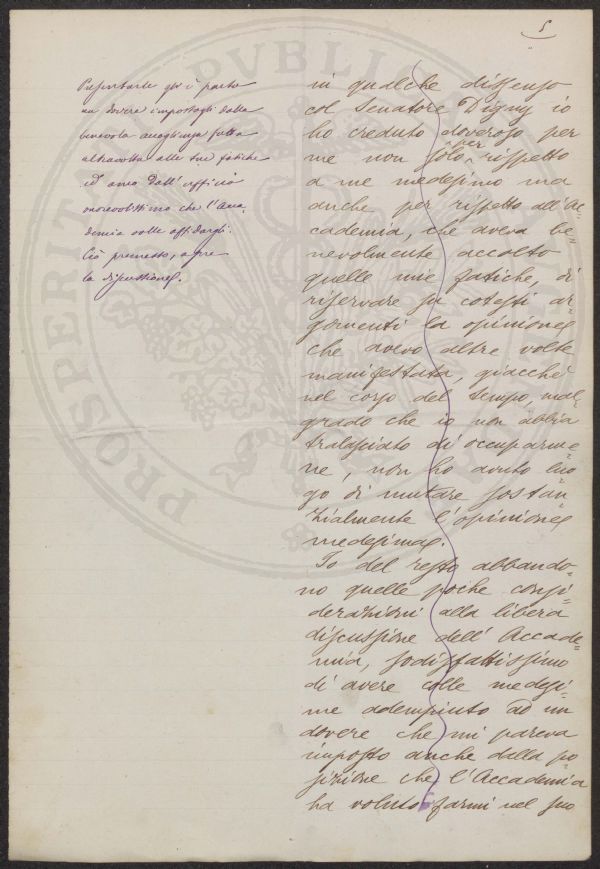 5
Presentarle gli è parso
un dovere impostogli dalla
benevola accoglienza fatta
altravolta alle sue fatiche
ed anco dall' ufficio
onorevolissimo che l'Acca-
demia volle affidargli.
Ciò premesso, apre
la discussione.
in qualche dissenso
col Senatore Digny io
ho creduto doveroso per
me non solo per rispetto
a me medesimo ma
anche per rispetto all'Ac=
cademia, che aveva be=
nevolmente accolto
quelle mie fatiche, di
riservare su cotesti ar=
gomenti la opinione
che avevo altre volte
manifestata, giacché
nel corso del tempo, mal=
grado che io non abbia
tralasciato di occuparme=
ne, non ho avuto luo=
go di mutare sostan=
zialmente l'opinione
medesima.
Io del resto abbando=
no quelle poche consi=
derazioni alla libera
discussione dell' Accade=
mia, sodisfattissimo
di avere colle medesi=
me adempiuto ad un
dovere che mi pareva
imposto anche dalla po=
sizione che l'Accademia
ha voluto farmi nel suo
PROSPERITATI PVBLICAE